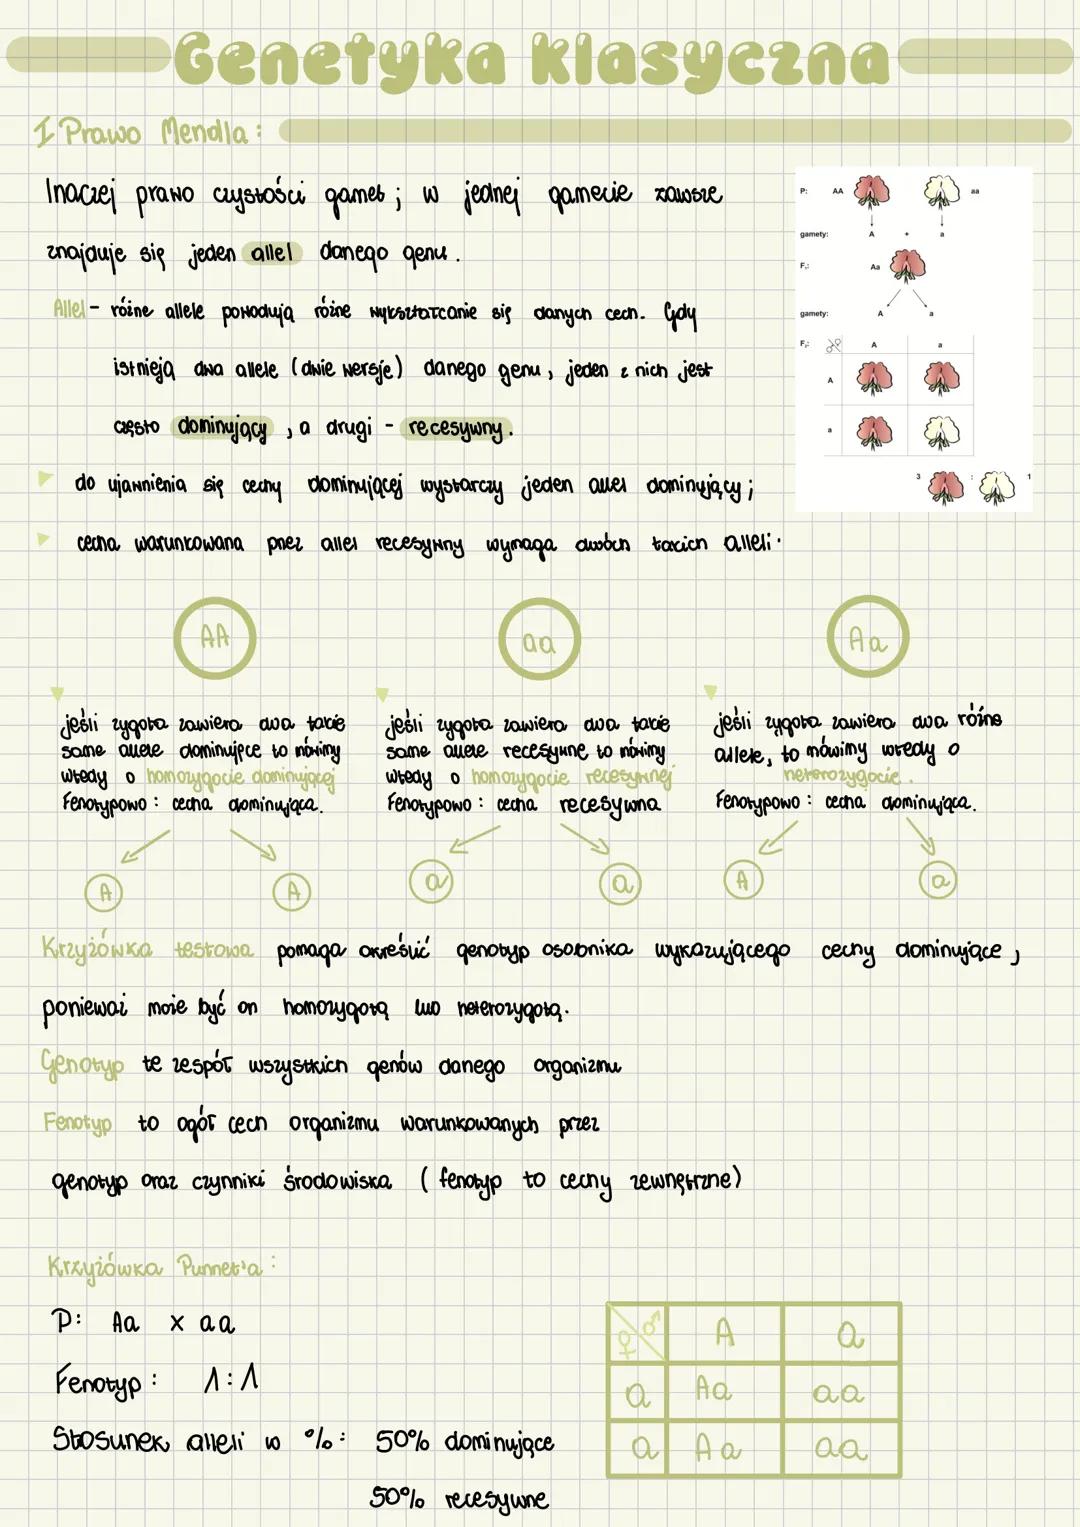 Genetyka klasyczna
I Prawo Mendla:
Inaczej prawo czystości gamet; w jednej gamecie zawsze
znajduje się jeden allel danego genu.
Allel - różne allele powodują różne wykształcanie się danych cech. Gdy
istnieją dwa allele (dwie wersje) danego genu, jeden z nich jest
często dominujący, a drugi - recesywny.
do ujawnienia się cechy dominującej wystarczy jeden allel dominujący;
cecha warunkowana przez allel recesywny wymaga dwóch takich alleli.
P: AA aa
gamety: A + a
F₁: Aa
gamety: A a
F₂: ♂♀ A a
A
a
3 : 1
AA
jeśli zygota zawiera dwa takie
same allele dominujęce to mówimy
wtedy o homozygocie dominującej
Fenotypowo: cecha dominująca.
A A
aa
jeśli zygota zawiera dwa takie
same allele recesywne to mówimy
wtedy o homozygocie recesywnej
Fenotypowo: cecha recesywna
a a
Aa
jeśli zygota zawiera dwa różne
allele, to mówimy wtedy o
heterozygocie.
Fenotypowo: cecha dominująca.
A a
Krzyżówka testowa pomaga określić genotyp osobnika wykazującego cechy dominujące,
ponieważ może być on homozygotą lub heterozygotą.
Genotyp te zespół wszystkich genów danego organizmu
Fenotyp to ogół cech organizmu warunkowanych przez
genotyp oraz czynniki środowiska (fenotyp to cechy zewnętrzne)
Krzyżówka Punnet'a:
P: Aa x aa
Fenotyp: 1:1
Stosunek alleli w %: 50% dominujące
50% recesywne
♀ ♂ A a
a Aa aa
a Aa aa